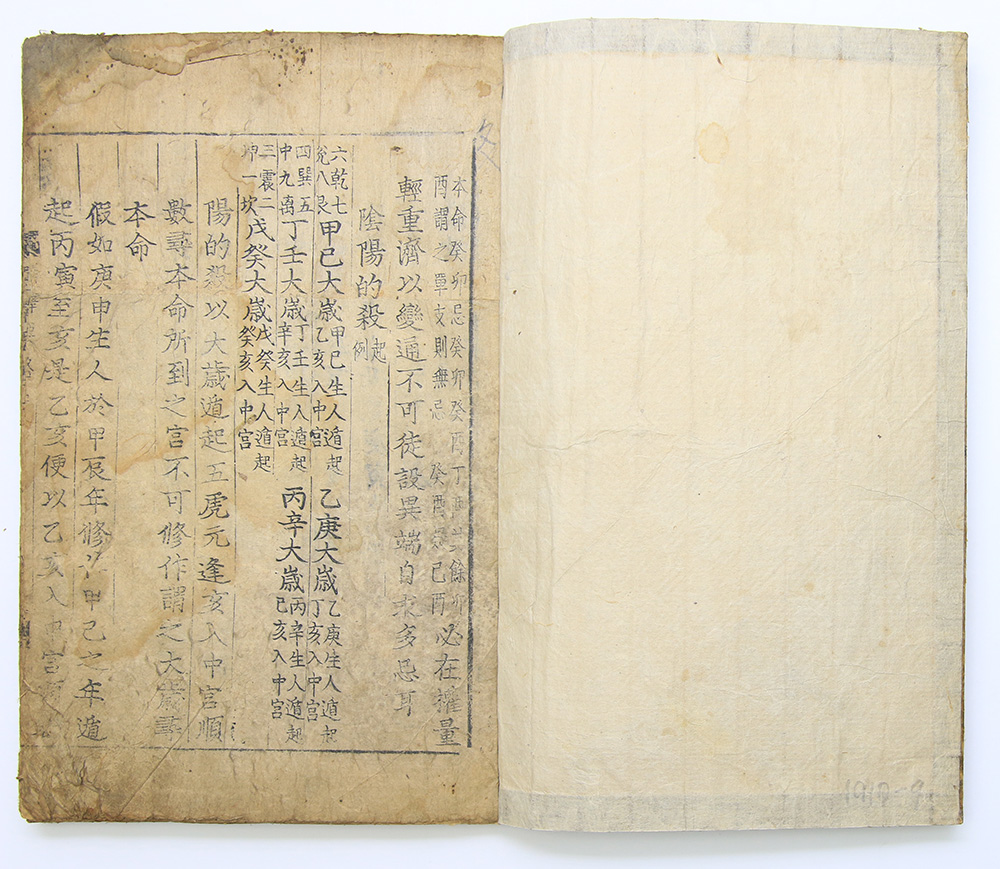 本命癸卯忌癸卯癸酉丁酉其餘卯
酉謂之單支則無忌 癸酉忌己酉 必在權量
輕重濟以變通不可徒設異端自求多忌耳
陰陽的殺起例
六乾七兌八艮 甲己大歲 甲己生人遁起乙亥入中宮 乙庚大歲 乙庚生人遁起丁亥入中宮
四巽五中九离 丁壬大歲 丁壬生人遁起辛亥入中宮 丙辛大歲 丙辛生人遁起己亥入中宮
三震二坤一坎 戊癸大歲 戊癸生人遁起癸亥入中宮
陽的殺以大歲遁起五虎元逢亥入中宮順
數尋本命所到之宮不可修作謂之大歲尋
本命
假如庚申生人於甲辰年修 甲己之年遁
起丙寅至亥是乙亥便以乙亥入中宮
1919-9